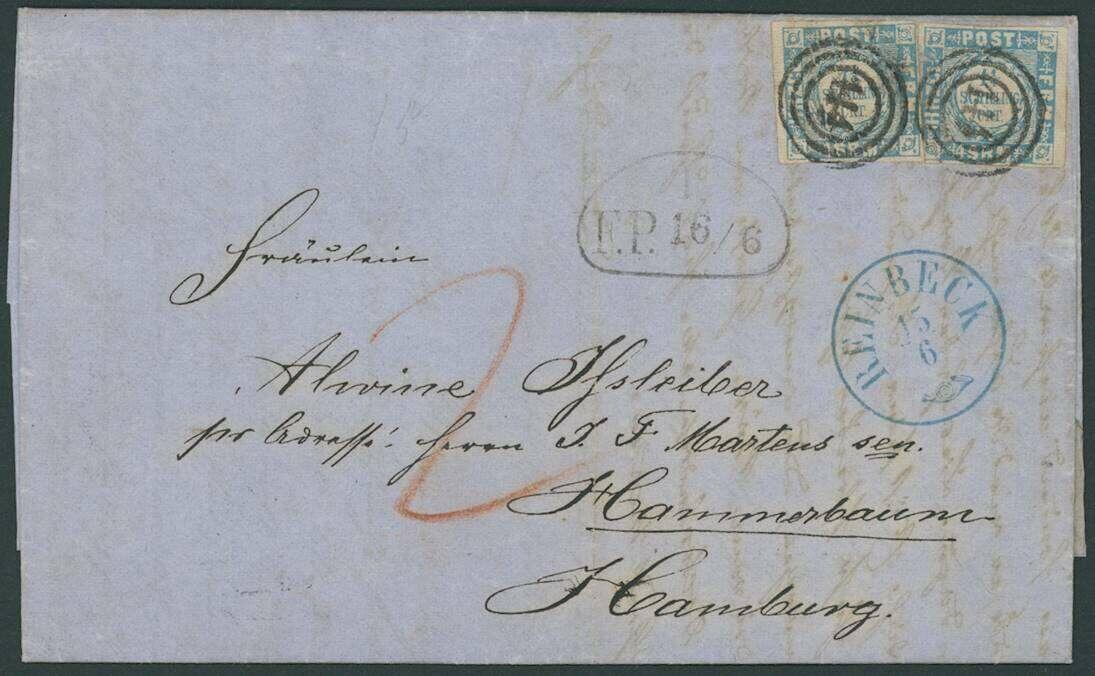 POST POST
SCHILLING
CRT.
F.P. 16/6
REINBECK
15
6
Fräulein
2
Alwine Ihsleiber
per Adresse: Herrn J F Martens sen.
Hammerbaum
Hamburg.